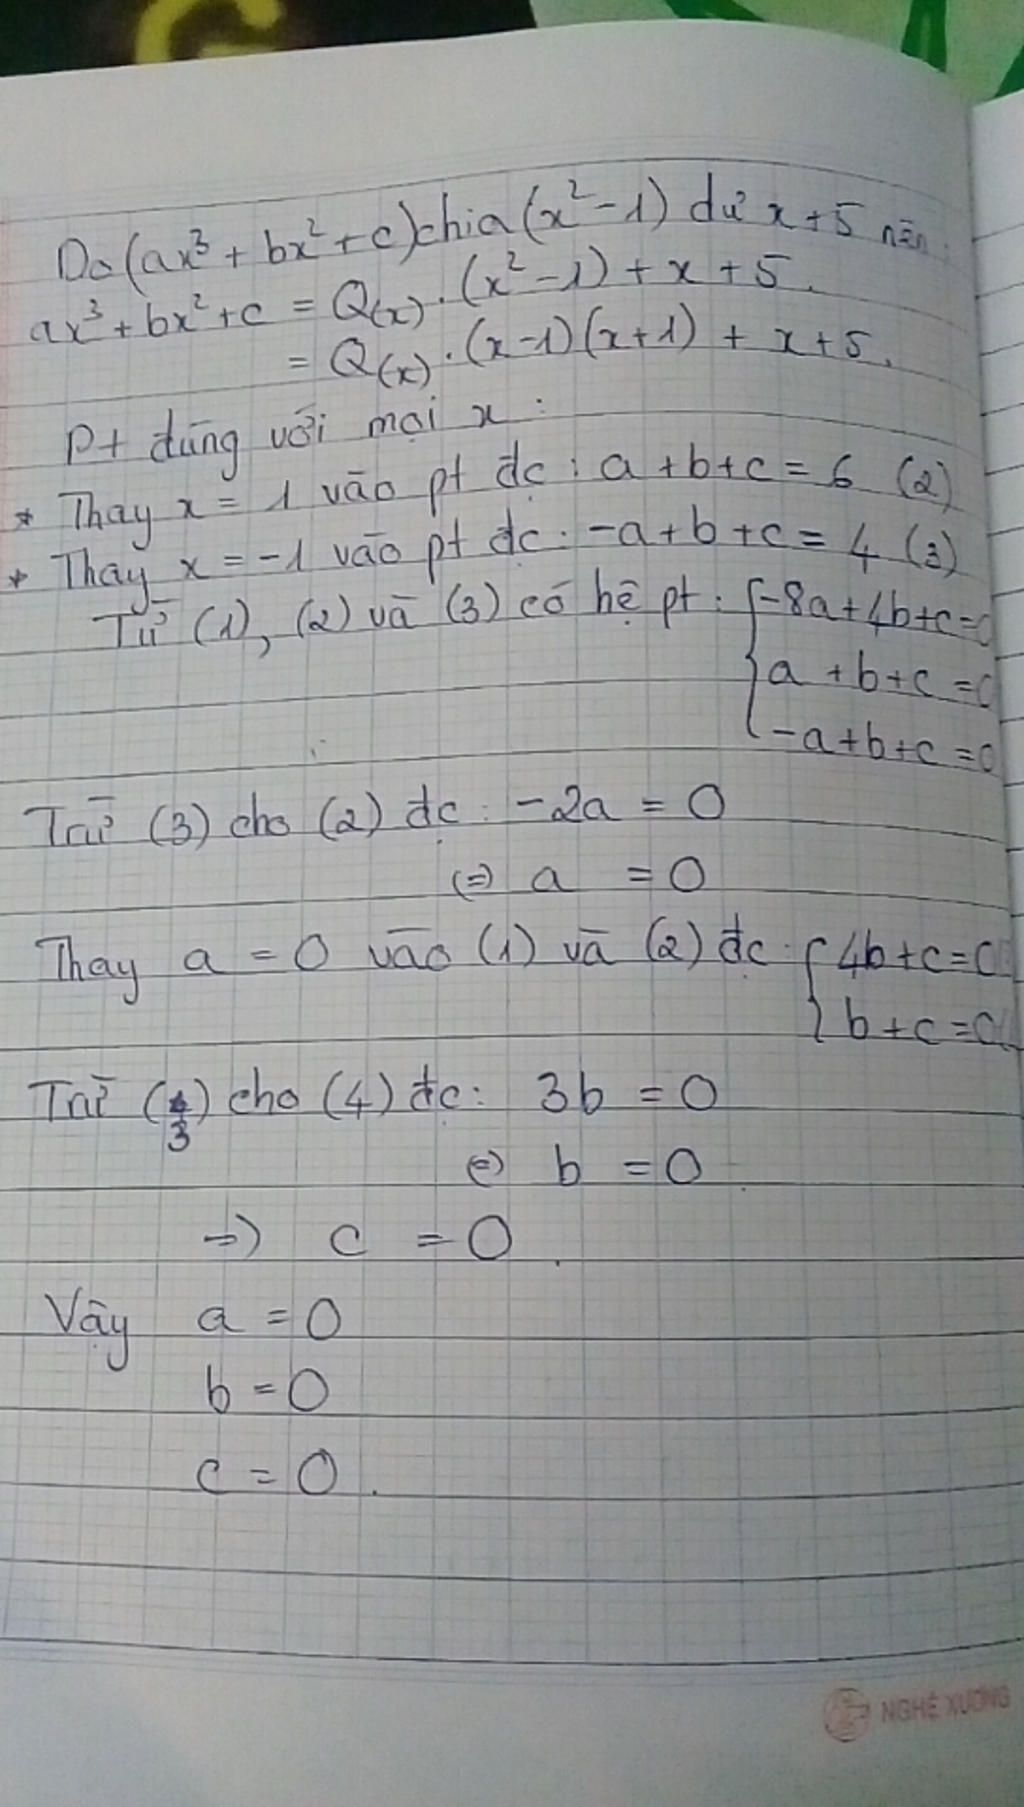 G
Do (ax³ + bx² + c) chia (x² - 1) dư x + 5 nên:
ax³ + bx² + c = Q(x) . (x² - 1) + x + 5.
= Q(x) . (x - 1)(x + 1) + x + 5.
Pt đúng với mọi x :
* Thay x = 1 vào pt đc : a + b + c = 6 (2)
* Thay x = -1 vào pt đc : -a + b + c = 4 (3)
Từ (1), (2) và (3) có hệ pt : { -8a + 4b + c = 0
a + b + c = 0
-a + b + c = 0
Trừ (3) cho (2) đc : -2a = 0
(=) a = 0
Thay a = 0 vào (1) và (2) đc : { 4b + c = 0
b + c = 0
Trừ (3) cho (4) đc : 3b = 0
(=) b = 0
=) c = 0.
Vậy a = 0
b = 0
c = 0.
NGHÊ XƯƠNG